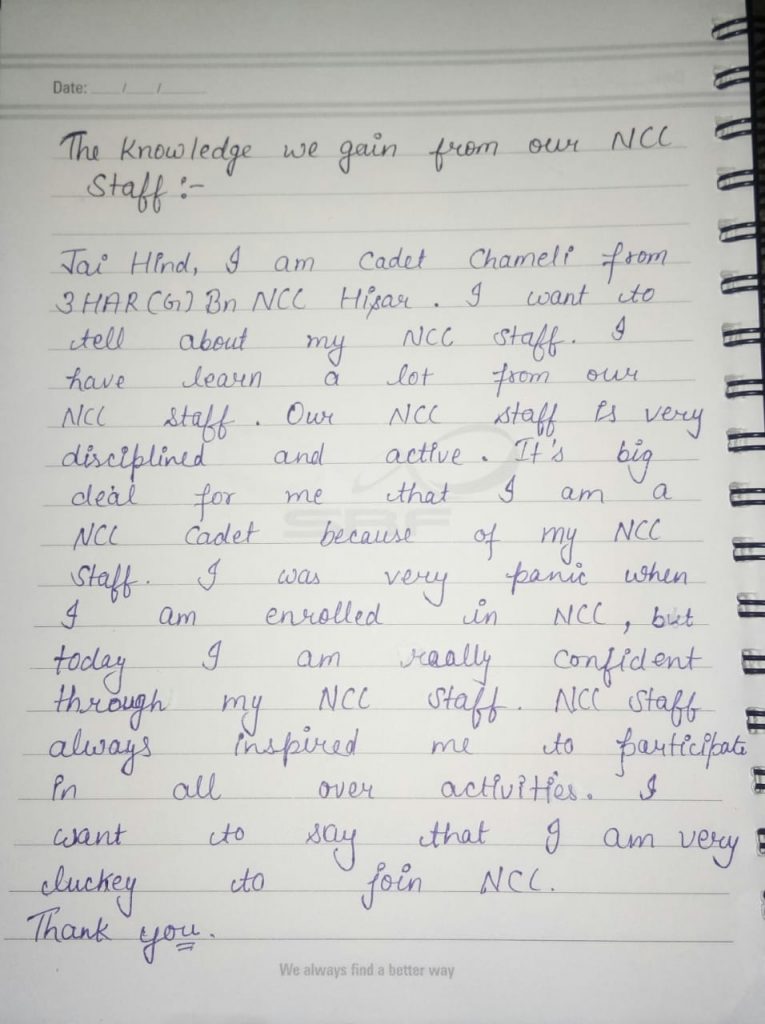 Date: / /
The Knowledge we gain from our NCC
Staff :-
Jai Hind, I am Cadet Chameli from
3 HAR (G) Bn NCC Hisar. I want to
tell about my NCC Staff. I
have learn a lot from our
NCC staff. Our NCC staff is very
disciplined and active. It's big
deal for me that I am a
NCC Cadet because of my NCC
Staff. I was very panic when
I am enrolled in NCC, but
today I am raally confident
through my NCC Staff. NCC Staff
always inspired me to participate
in all over activities. I
want to say that I am very
luckey to join NCC.
Thank you.
SRF
We always find a better way